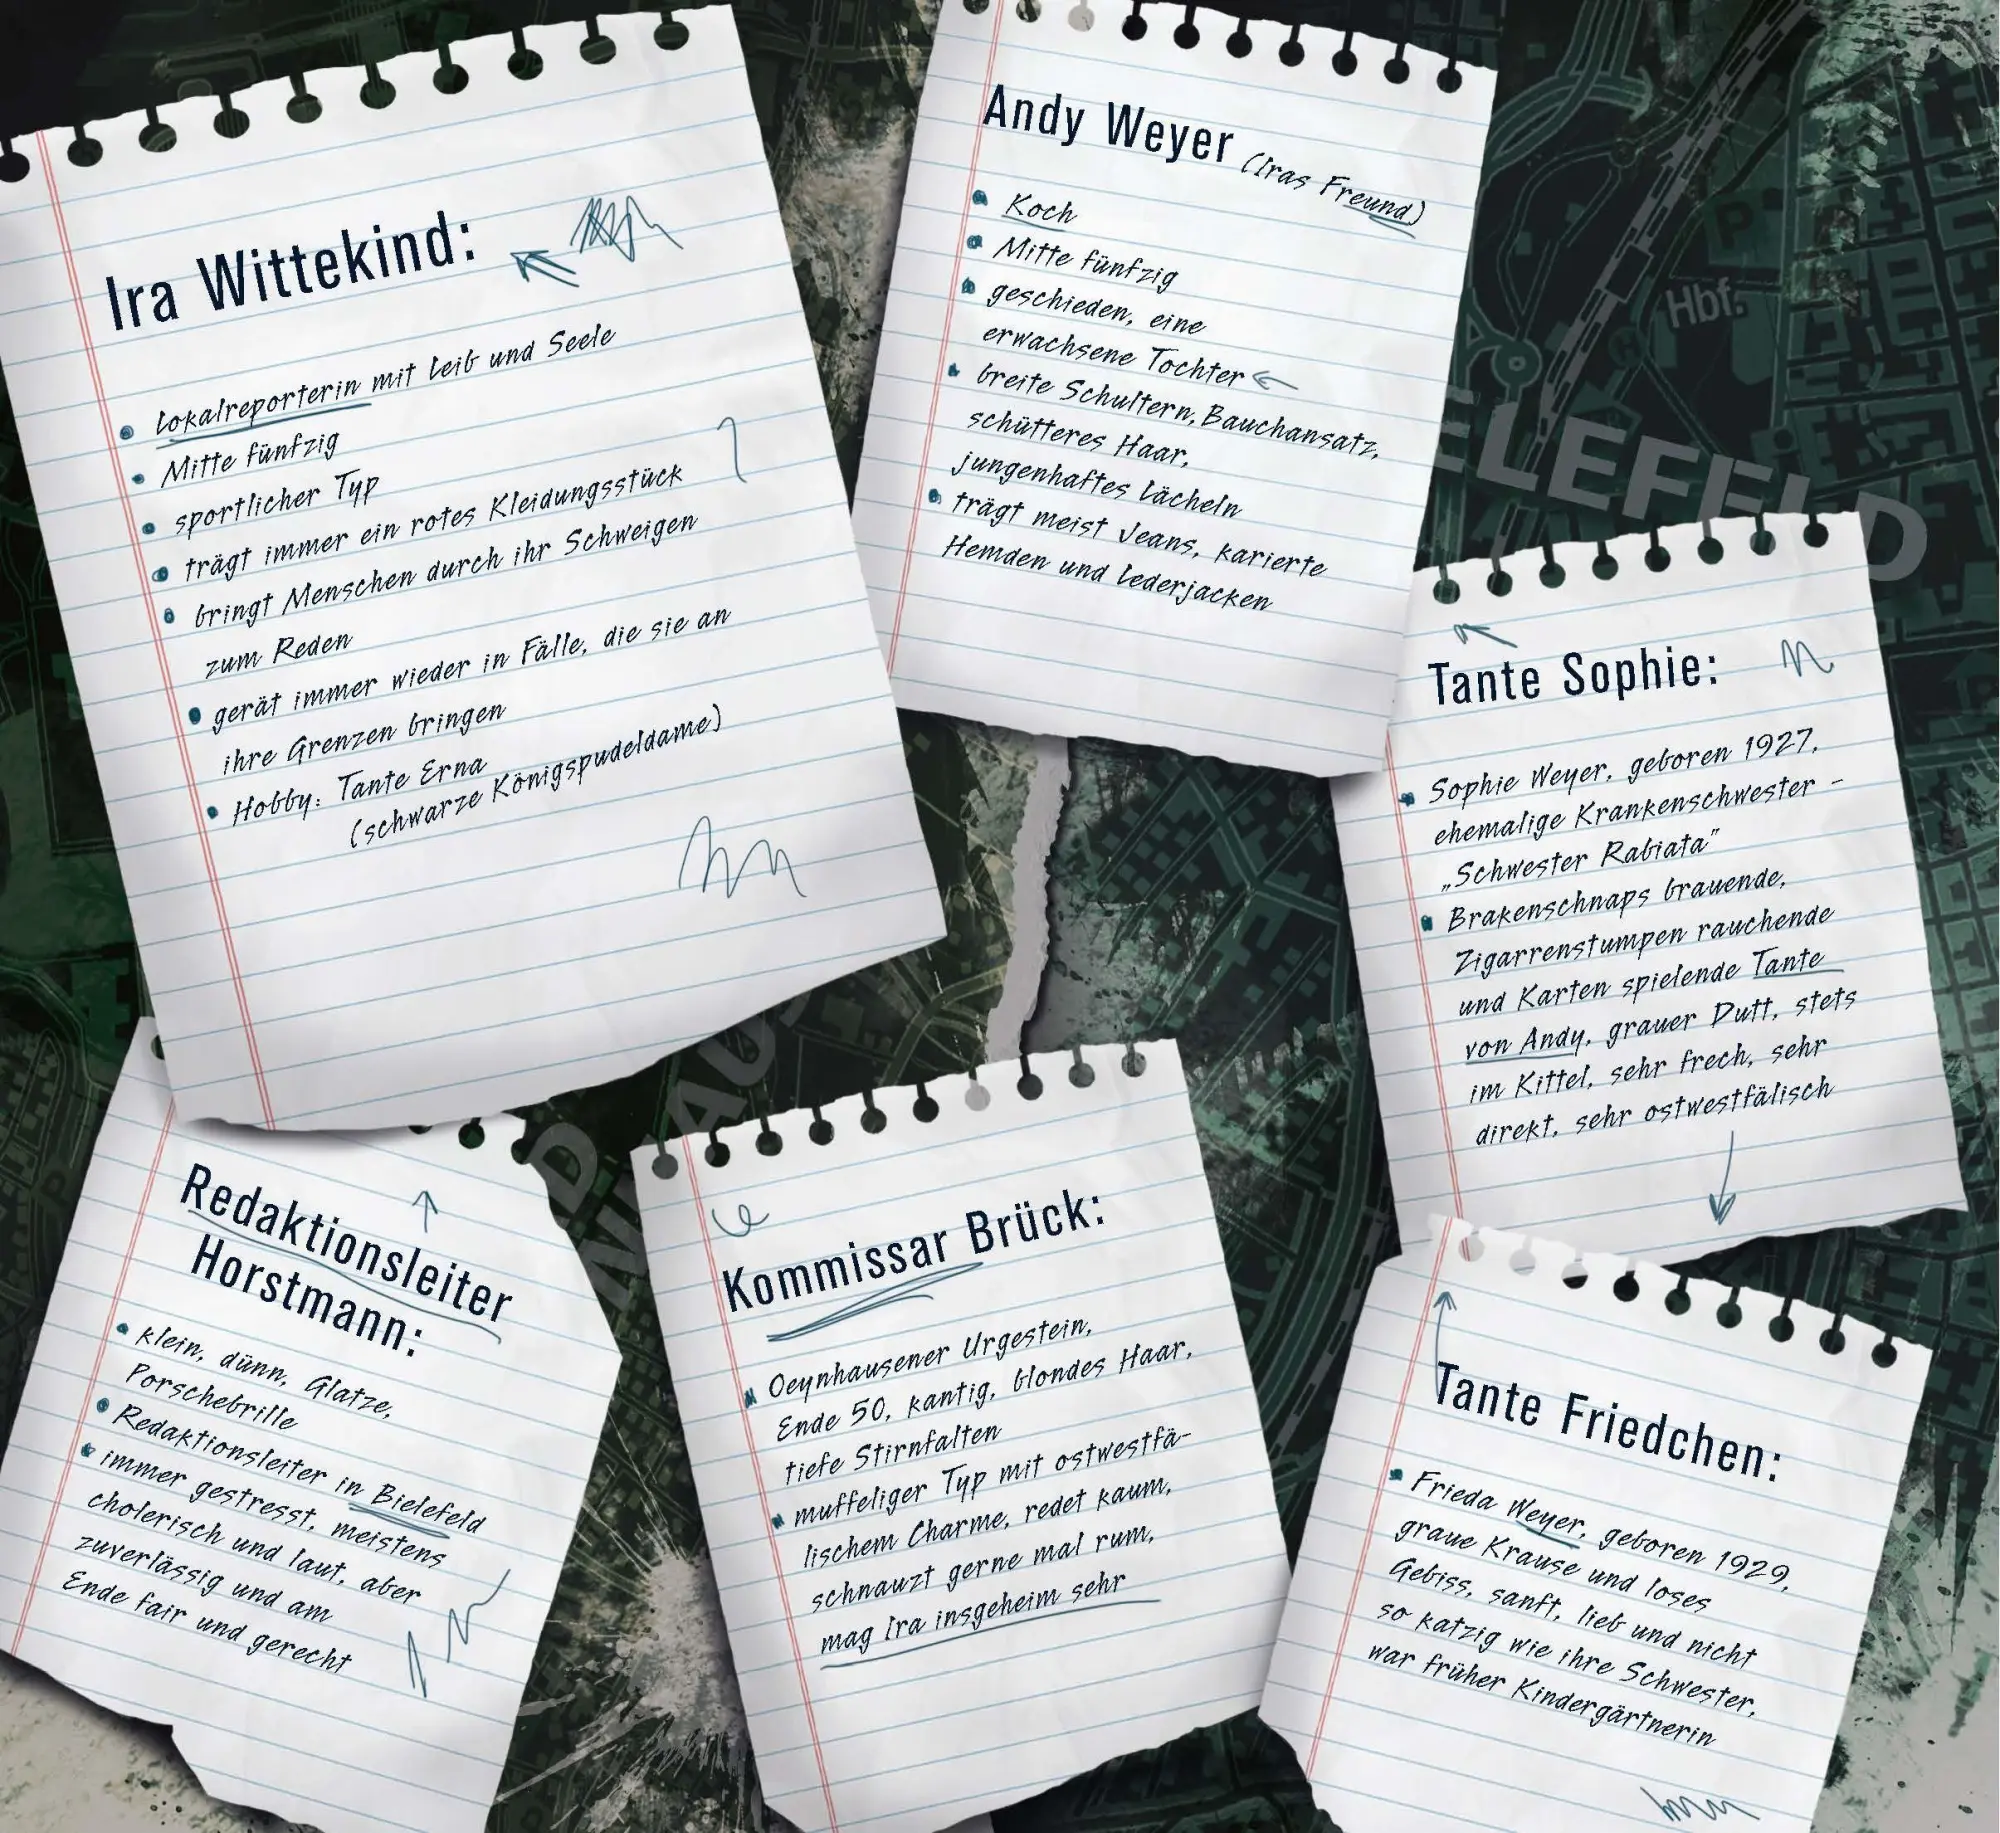 Ira Wittekind:
Lokalreporterin mit Leib und Seele
Mitte fünfzig
sportlicher Typ
trägt immer ein rotes Kleidungsstück
bringt Menschen durch ihr Schweigen
zum Reden
gerät immer wieder in Fälle, die sie an
ihre Grenzen bringen
Hobby: Tante Erna
(schwarze Königspudeldame)
Andy Weyer (Iras Freund)
Koch
Mitte fünfzig
geschieden, eine
erwachsene Tochter
breite Schultern, Bauchansatz,
schütteres Haar,
jungenhaftes Lächeln
trägt meist Jeans, karierte
Hemden und Lederjacken
Hbf.
ELEFELD
Tante Sophie:
Sophie Weyer, geboren 1927,
ehemalige Krankenschwester –
„Schwester Rabiata"
Brakenschnaps brauende,
Zigarrenstumpen rauchende
und Karten spielende Tante
von Andy, grauer Dutt, stets
im Kittel, sehr frech, sehr
direkt, sehr ostwestfälisch
Redaktionsleiter
Horstmann:
klein, dünn, Glatze,
Porschebrille
Redaktionsleiter in Bielefeld
immer gestresst, meistens
cholerisch und laut, aber
zuverlässig und am
Ende fair und gerecht
Kommissar Brück:
Oeynhausener Urgestein,
Ende 50, kantig, blondes Haar,
tiefe Stirnfalten
muffeliger Typ mit ostwestfä-
lischem Charme, redet kaum,
schnauzt gerne mal rum,
mag Ira insgeheim sehr
Tante Friedchen:
Frieda Weyer, geboren 1929,
graue Krause und loses
Gebiss, sanft, lieb und nicht
so katzig wie ihre Schwester,
war früher Kindergärtnerin